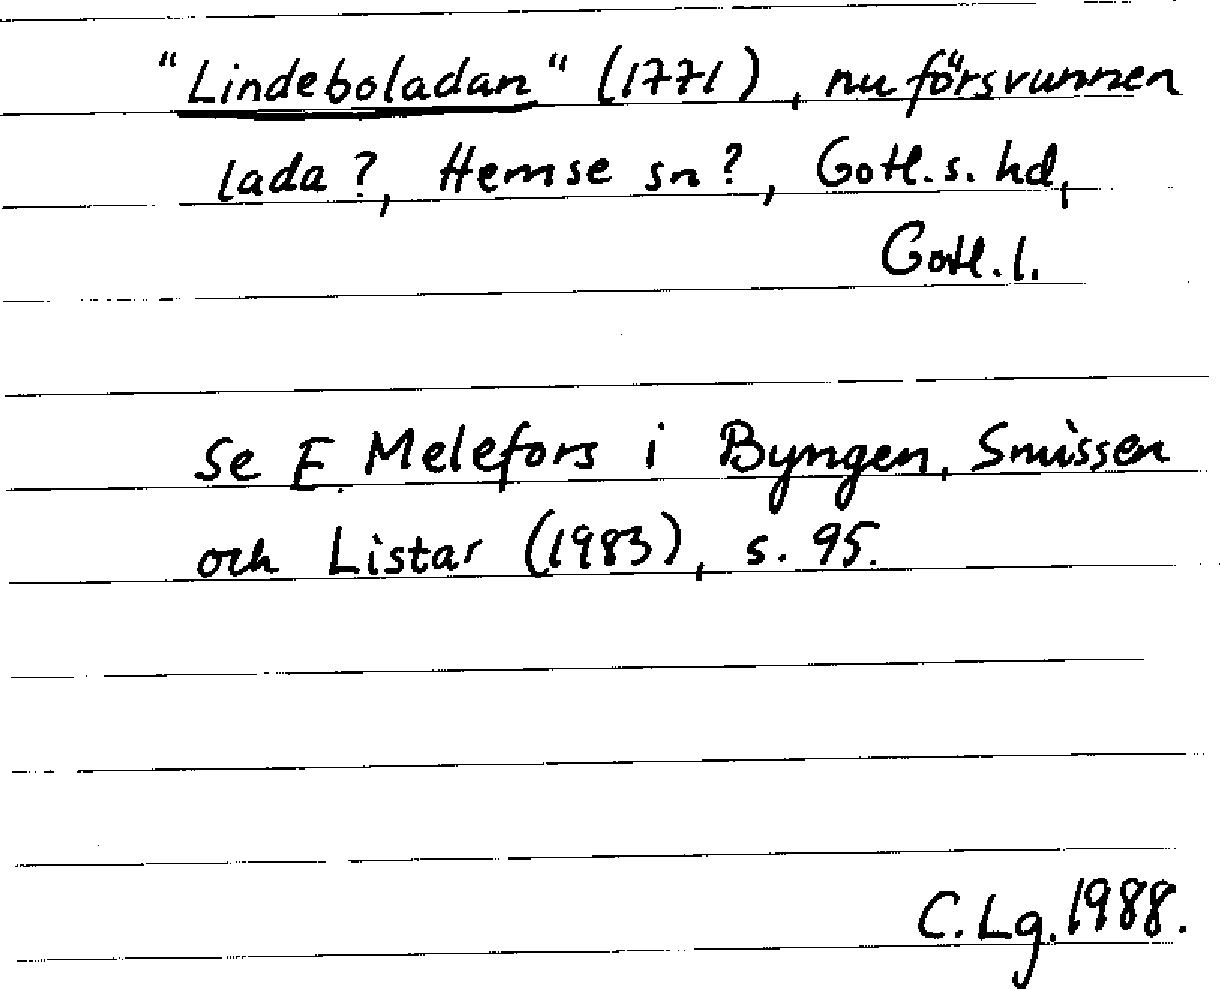 "Lindeboladan" (1771), nu försvunnen
lada?, Hemse sn?, Gotl.s. hd,
Gotl.l.
Se E. Melefors i Byngen, Smissen
och Listar (1983), s. 95.
C.Lg.1988.